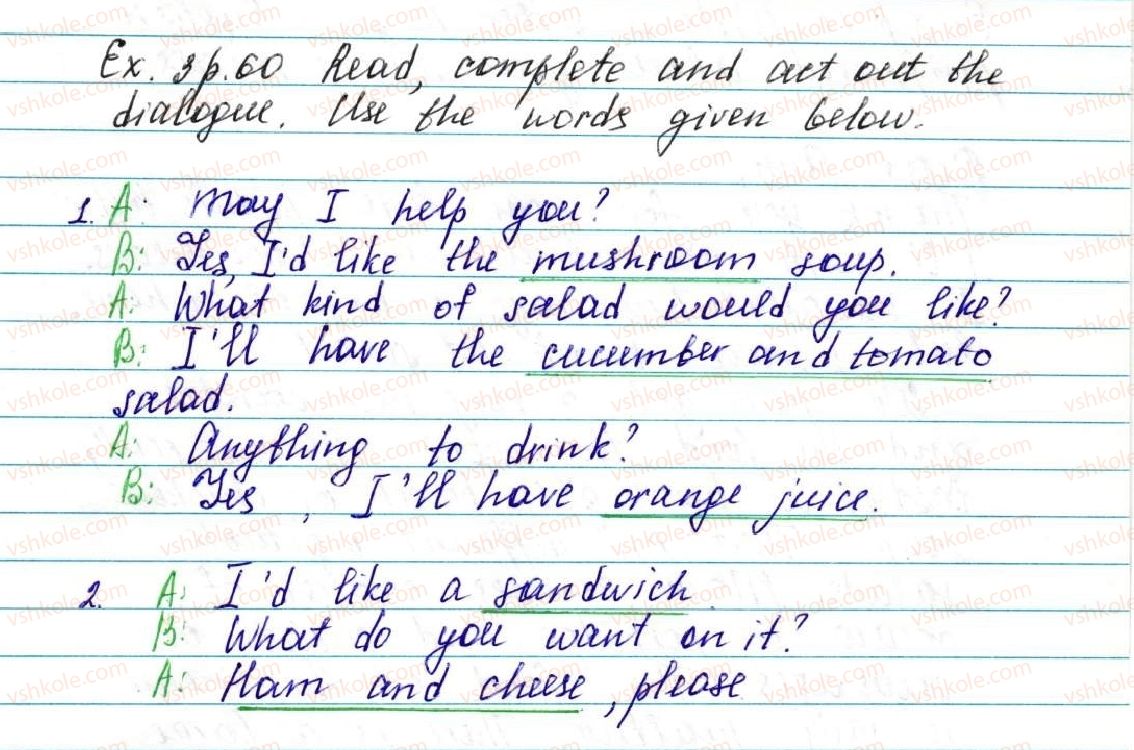 Ex. 3 p.60 Read, complete and act out the
dialogue. Use the words given below.
1. A: May I help you?
B: Yes, I'd like the mushroom soup.
A: What kind of salad would you like?
B: I'll have the cucumber and tomato
salad.
A: Anything to drink?
B: Yes, I'll have orange juice.
2. A: I'd like a sandwich.
B: What do you want on it?
A: Ham and cheese, please